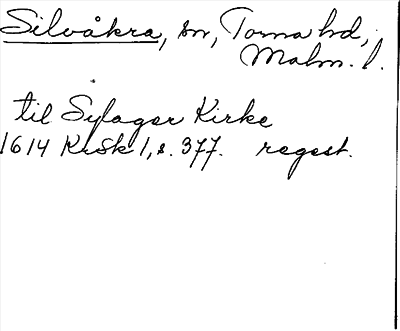 Silvåkra, sn, Torna hd,
Malm. l.
til Sylager Kirke
1614 KrSk 1, s. 377. regest.